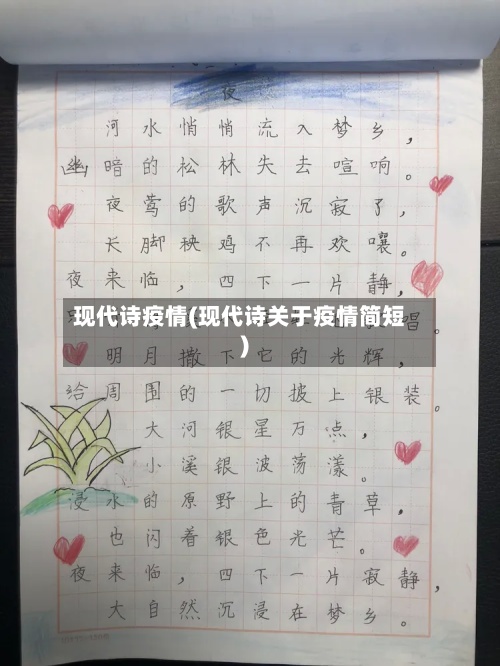 夜
河水悄悄流入梦乡，
幽暗的松林失去喧响。
夜莺的歌声沉寂了，
长脚秧鸡不再欢嚷。
夜来临，四下一片静，
现代诗疫情(现代诗关于疫情简短
)
唱。
明月撒下它的光辉，
给周围的一切披上银装。
大河银星万点，
小溪银波荡漾。
浸水的原野上的青草，
也闪着银色光芒。
夜来临，四下一片寂静，
大自然沉浸在梦乡。